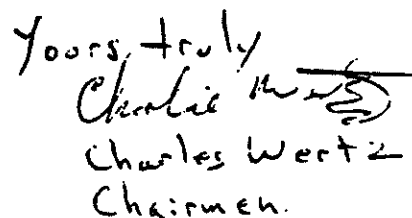 Yours truly
Charlie
Charles Wertz
Chairmen.